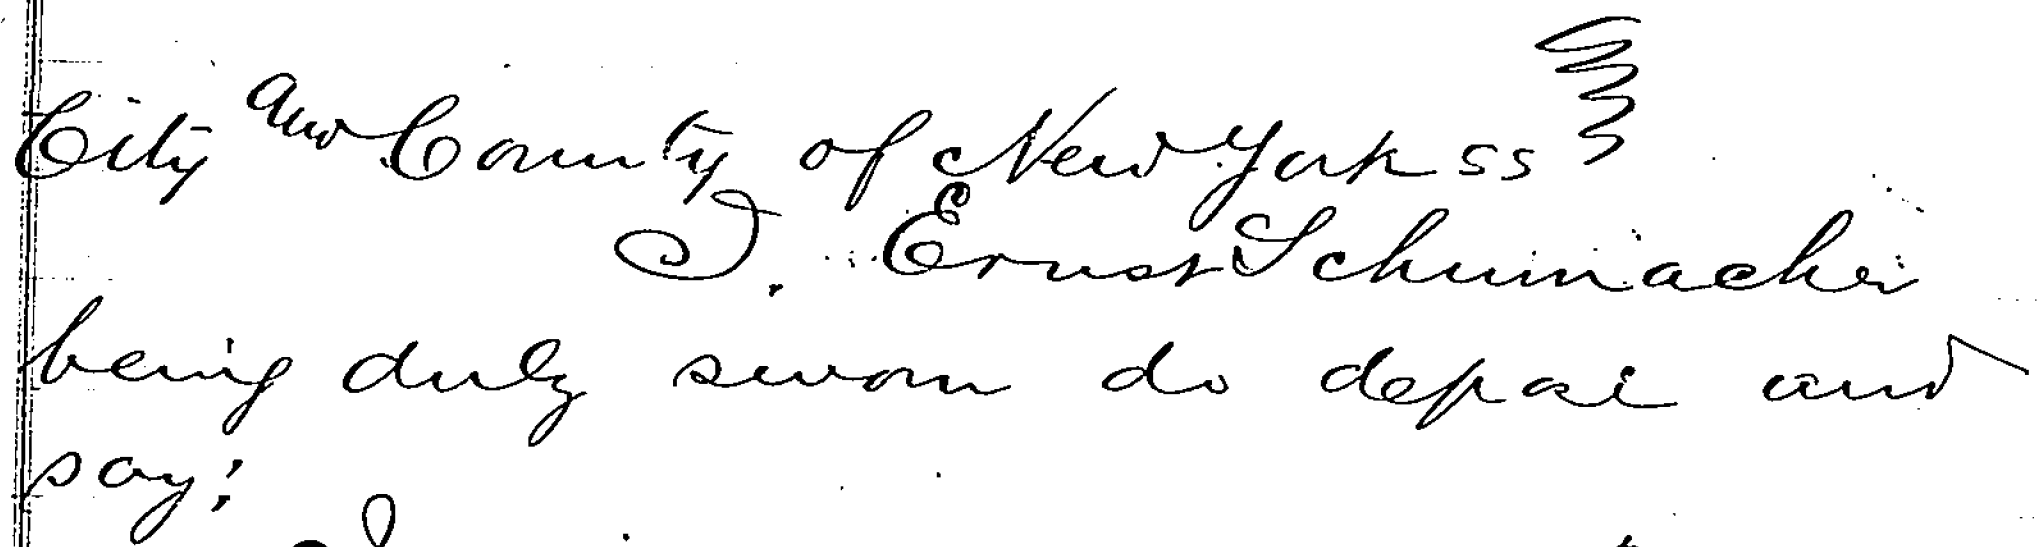 City and County of New York ss
I. Ernst Schumacher
being duly sworn do depose and
say: